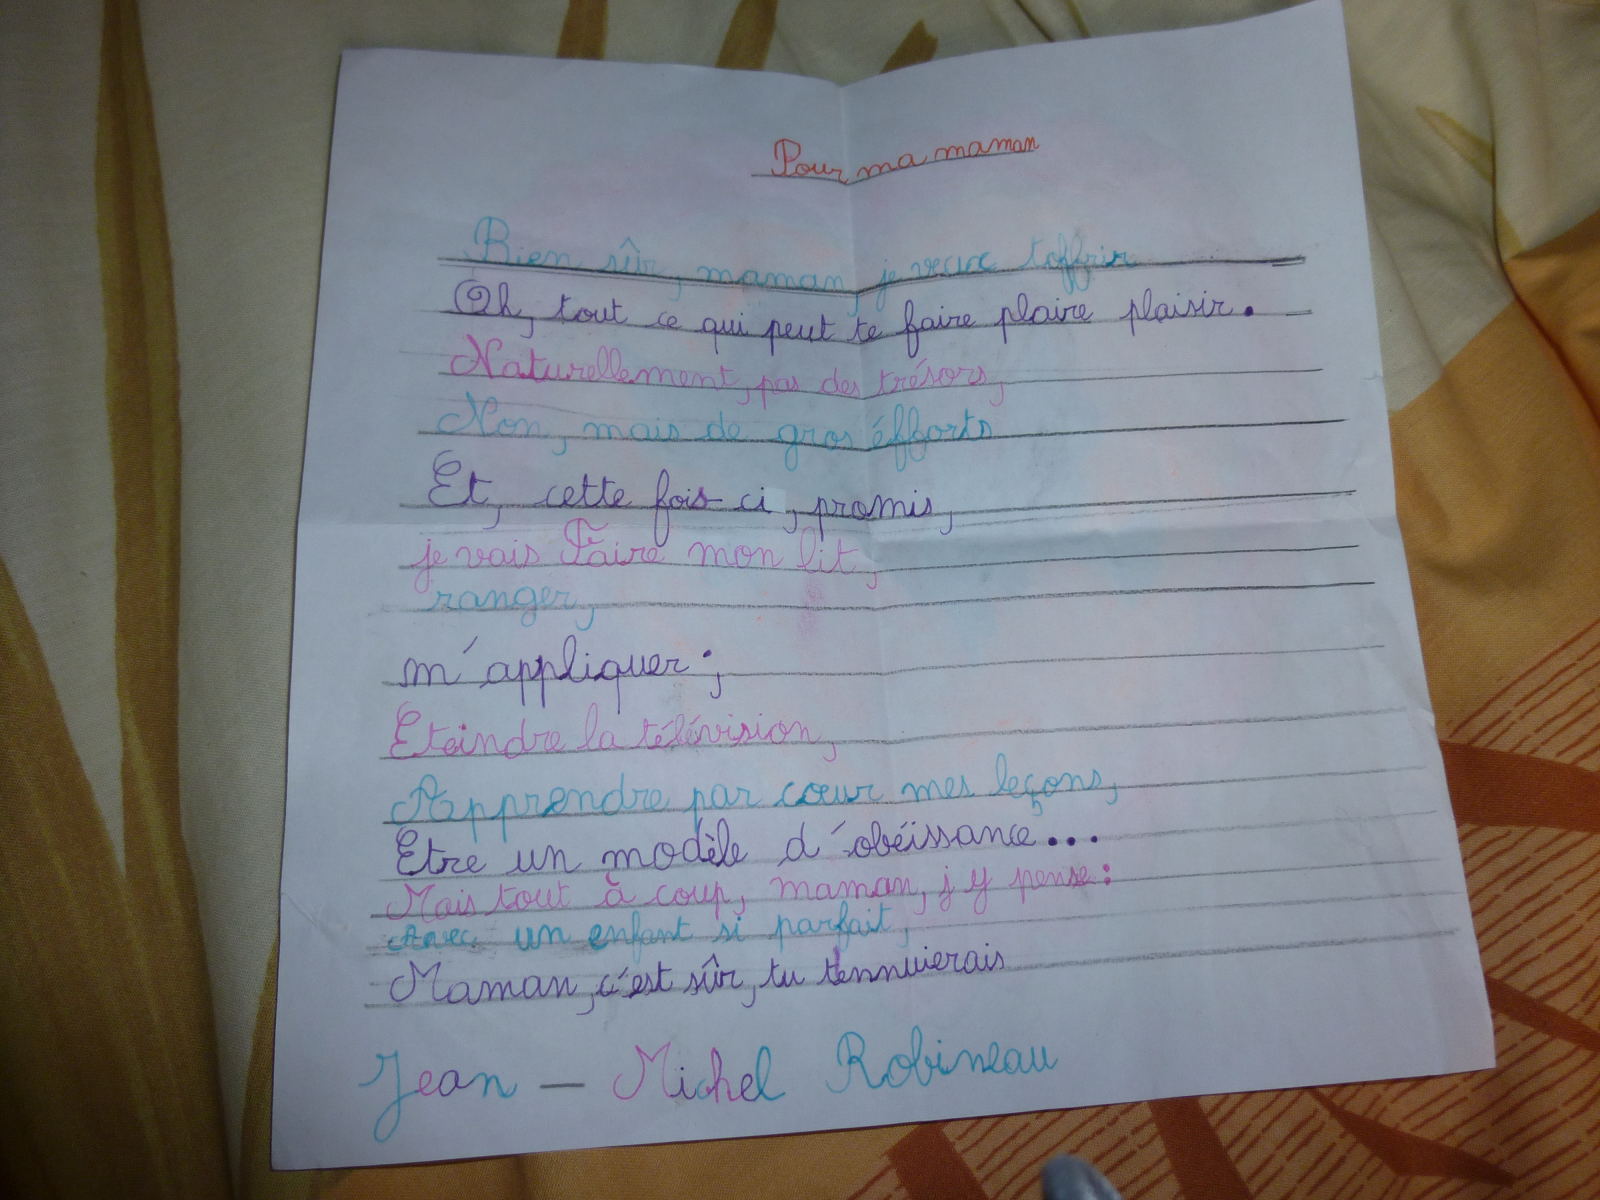 Pour ma maman
Bien sûr, maman, je veux toffrir
Oh, tout ce qui peut te faire plaire plaisir.
Naturellement, pas des trésors,
Non, mais de gros éfforts
Et, cette fois-ci, promis,
je vais Faire mon lit,
ranger,
m'appliquer;
Eteindre la télévision,
Apprendre par cœur mes leçons,
Etre un modèle d'obéissance...
Mais tout à coup, maman, j'y pense:
Avec un enfant si parfait,
Maman, c'est sûr, tu tennuierais
Jean - Michel Robineau